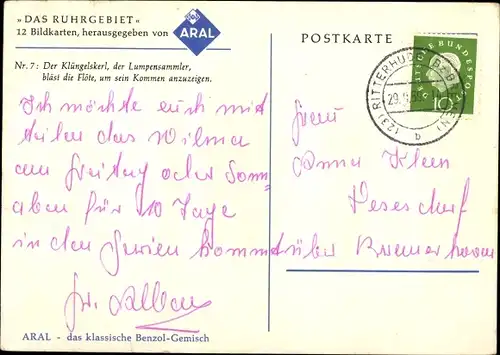 »DAS RUHRGEBIET«
12 Bildkarten, herausgegeben von ARAL
Nr. 7: Der Klüngelskerl, der Lumpensammler,
bläst die Flöte, um sein Kommen anzuzeigen.
Ich möchte euch mit
teilen das Wilma
am Freitag oder Sonn
abend für 10 Tage
in den Ferien kommt
fr.
ARAL - das klassische Benzol-Gemisch
POSTKARTE
DEUTSCHE BUNDESPOST
10
(23) RITTERHUDE (BZ BREMEN)
b
Frau
Anna Klein
Wesedorf
über Bremerhaven